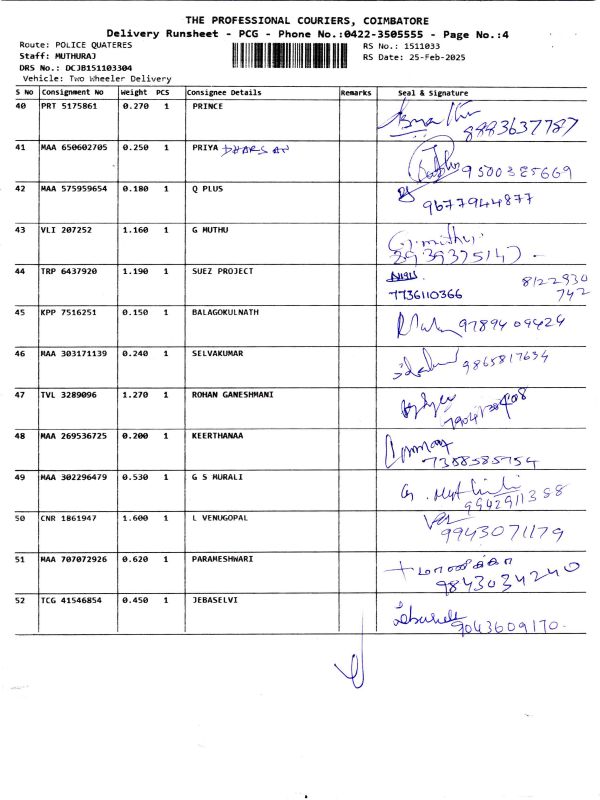 THE PROFESSIONAL COURIERS, COIMBATORE
Delivery Runsheet - PCG - Phone No.:0422-3505555 - Page No.:4
Route: POLICE QUATERES RS No.: 1511033
Staff: MUTHURAJ RS Date: 25-Feb-2025
DRS No.: DCJB151103304
Vehicle: Two Wheeler Delivery
S No Consignment No Weight PCS Consignee Details Remarks Seal & Signature
40 PRT 5175861 0.270 1 PRINCE
8883637787
41 MAA 650602705 0.250 1 PRIYA DHARSAN
9500385669
42 MAA 575959654 0.180 1 Q PLUS
9677944877
43 VLI 207252 1.160 1 G MUTHU
G. muthu.
44 TRP 6437920 1.190 1 SUEZ PROJECT
8122930
7736110366 742
45 KPP 7516251 0.150 1 BALAGOKULNATH
9789409424
46 MAA 303171139 0.240 1 SELVAKUMAR
9865817634
47 TVL 3289096 1.270 1 ROHAN GANESHMANI
48 MAA 269536725 0.200 1 KEERTHANAA
7358585754
49 MAA 302296479 0.530 1 G S MURALI
9942911358
50 CNR 1861947 1.600 1 L VENUGOPAL
9943071179
51 MAA 707072926 0.620 1 PARAMESHWARI
9843034240
52 TCG 41546854 0.450 1 JEBASELVI
9043609170.